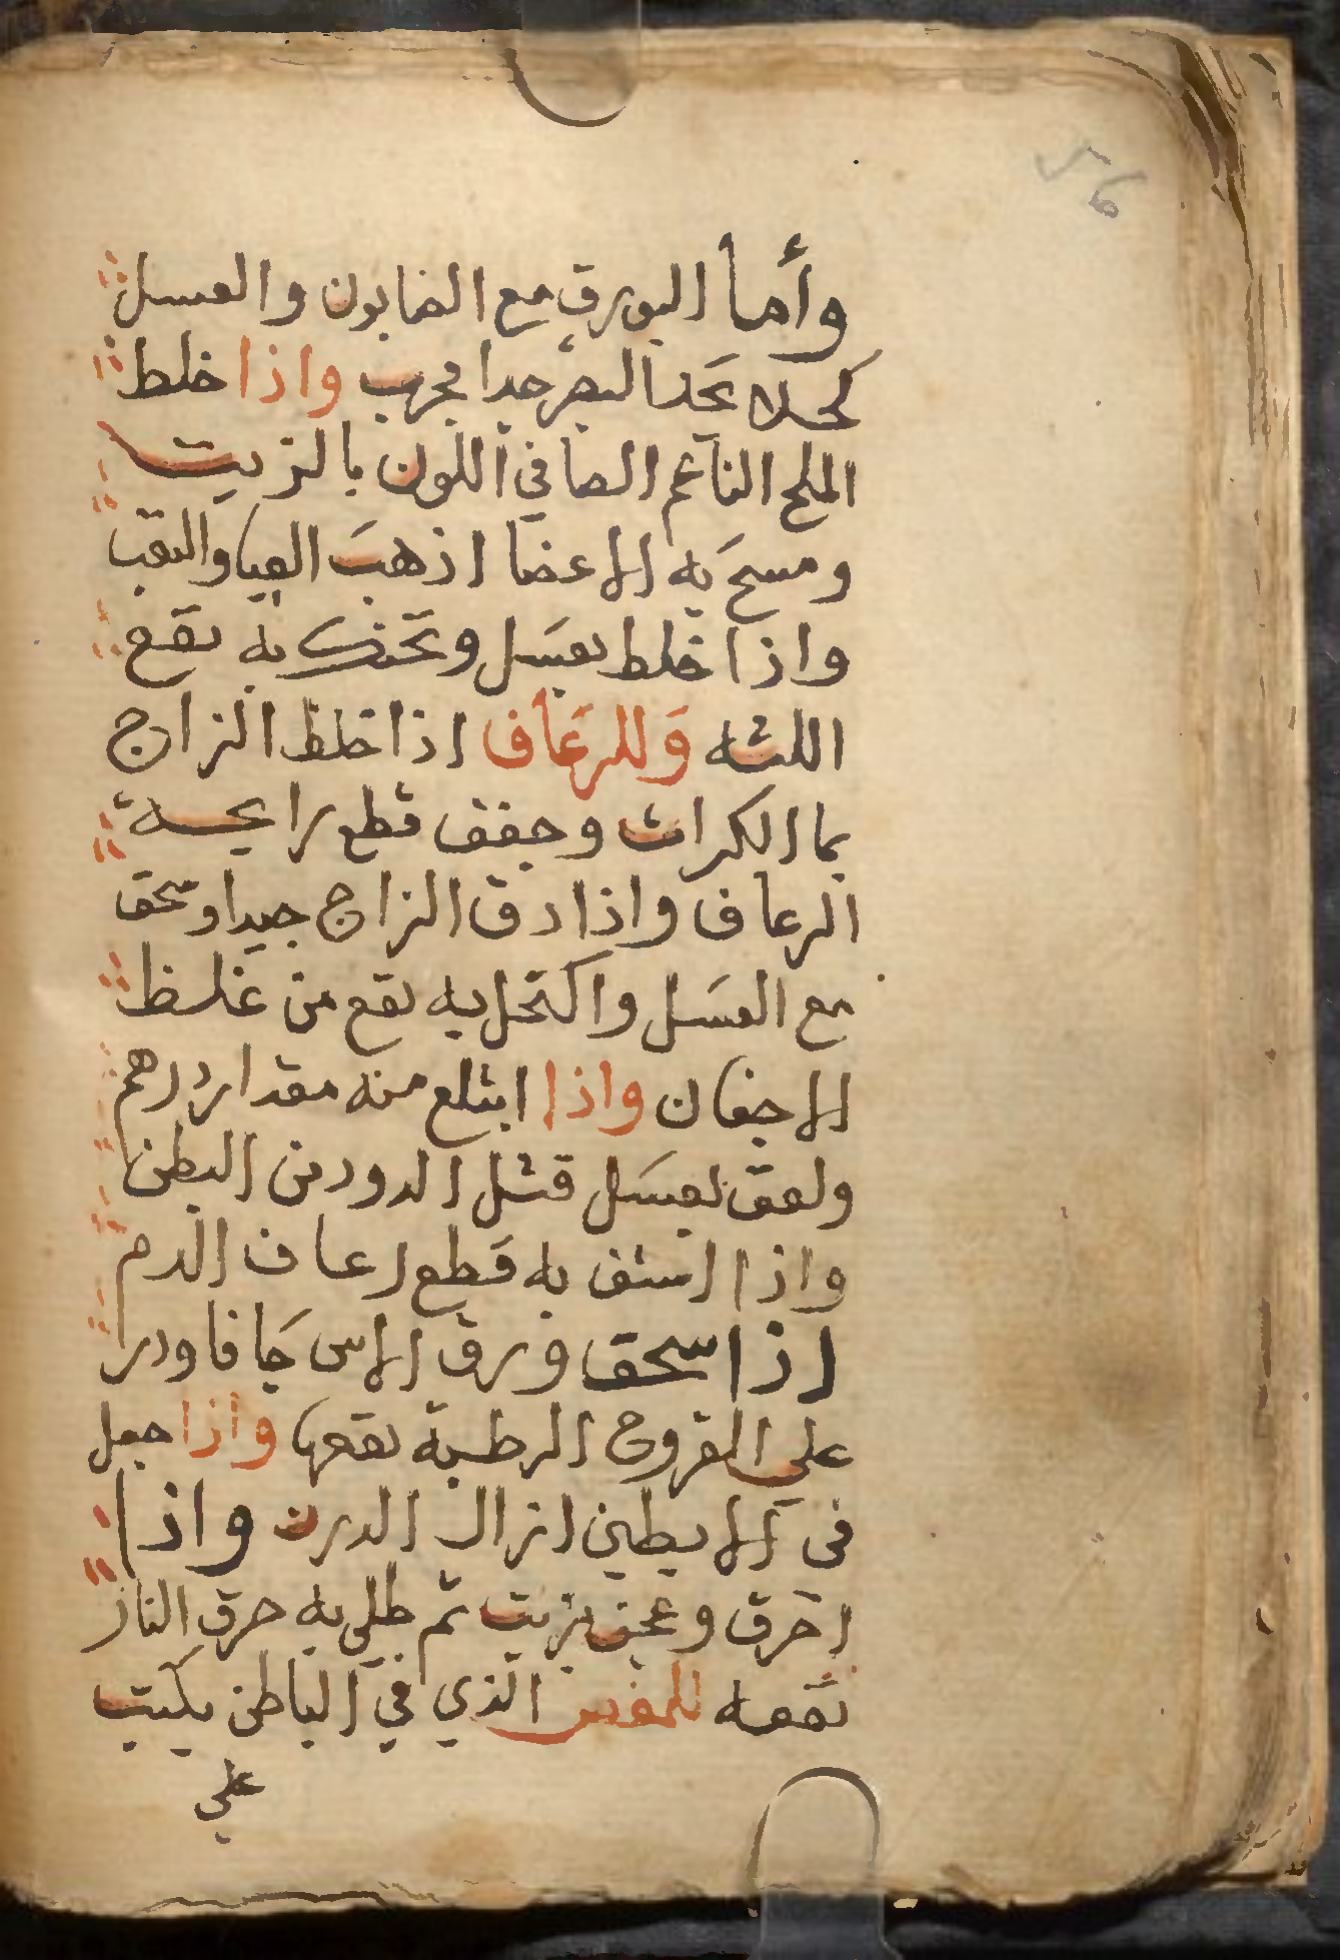 ٥٦
وأما البورق مع الصابون والعسل
كحلا يحد البصر جدا مجرب واذا خلط
الملح الناعم الصافي اللون بالزيت
ومسح به الاعضا اذهب العيا والتعب
واذا خلط بعسل وتحنك به نفع
اللثه وللرعاف اذا خلط الزاج
بما الكراث وجفف قطع رايحة
الرعاف واذا دق الزاج جيدا وسحق
مع العسل واكتحل به نفع من غلظ
الاجفان واذا ابتلع منه مقدار درهم
ولعق بعسل قتل الدود من البطن
واذا استف به قطع رعاف الدم
اذا سحق ورق الاس جافا ودر
علي القروح الرطبة نفعها واذا جعل
في الابطين ازال الدرن واذا
احرق وعجن بزيت ثم طلي به حرق النار
نفعه للمغس الذي في الباطن يكتب
علي